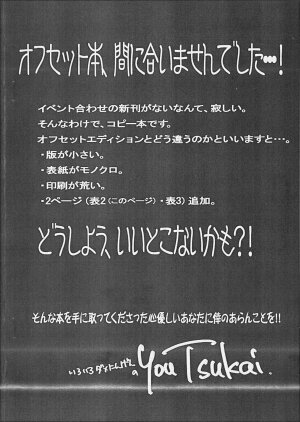 オフセット本、間に合いませんでした…!
イベント合わせの新刊がないなんて、寂しい。
そんなわけで、コピー本です。
オフセットエディションとどう違うのかといいますと…。
・版が小さい。
・表紙がモノクロ。
・印刷が荒い。
・2ページ(表2(このページ)・表3)追加。
どうしよう、いいとこないかも?!
そんな本を手に取ってくださった心優しいあなたに倖のあらんことを!!
の You Tsukai.